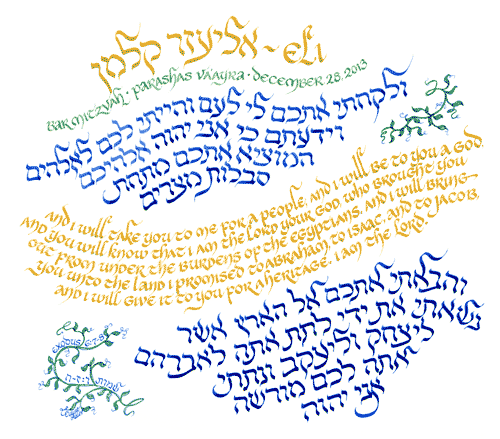 אליעזר קלמן ~ ELI
BAR MITZVAH · PARASHAS VA'AYRA · DECEMBER 28, 2013
ולקחתי אתכם לי לעם והייתי לכם לאלהים
וידעתם כי אני יהוה אלהיכם
המוציא אתכם מתחת
סבלות מצרים
AND I WILL TAKE YOU TO ME FOR A PEOPLE, AND I WILL BE TO YOU A GOD,
AND YOU WILL KNOW THAT I AM THE LORD YOUR GOD, WHO BROUGHT YOU
OUT FROM UNDER THE BURDENS OF THE EGYPTIANS. AND I WILL BRING
YOU UNTO THE LAND I PROMISED TO ABRAHAM, TO ISAAC, AND TO JACOB,
AND I WILL GIVE IT TO YOU FOR A HERITAGE. I AM THE LORD.
והבאתי אתכם אל הארץ אשר
נשאתי את ידי לתת אתה לאברהם
ליצחק וליעקב ונתתי
אתה לכם מורשה
אני יהוה
EXODUS 6:7-8
שמות ו:ז-ח